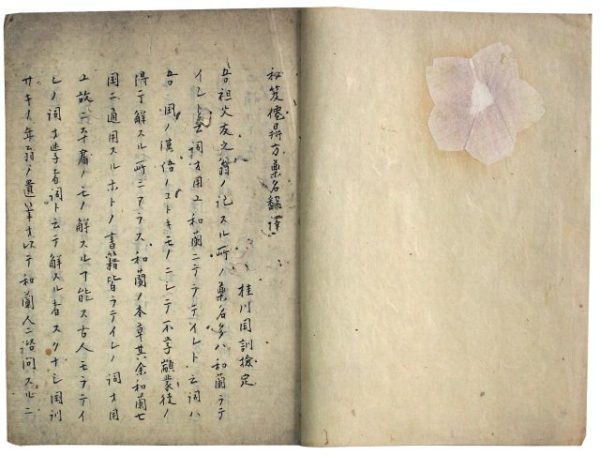 秘笈傔得方薬名翻譯
桂川国訓撿定
吾祖父友之翁ノ記スル所ノ薬名多ハ和蘭ラテ
イレト云詞ヲ用ユ和蘭ニテラテイレト云詞ハ
吾国ノ漢語ノコトキモノニシテ不学顓蒙徒ノ
得テ解スル所ニアラス和蘭ノ本草其余和蘭七
国ニ通用スルホトノ書籍皆ラテイレノ詞ヲ用
ユ故ニ本書ノモノ解スルヿ能ス古人モラテイ
レノ詞ヲ迷者詞ト云テ解スル者スクナシ国訓
サキノ年翁ノ遺筆ヲ以テ和蘭人ニ諮問スルニ